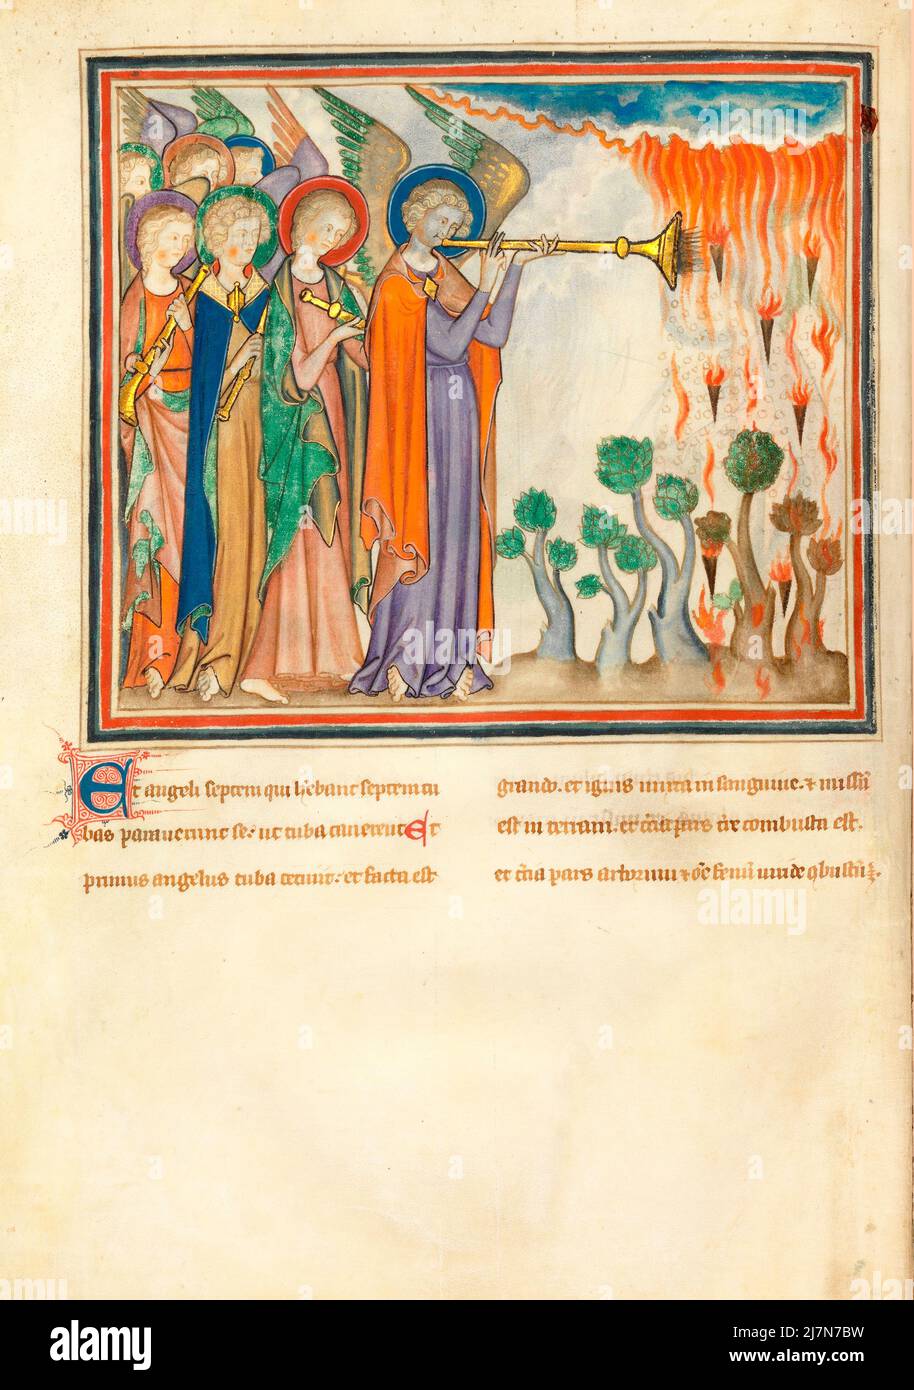 Et angeli septem qui hebant septem tu
bas paraverunt se. ut tuba canerent Et
primus angelus tuba cecinit. et facta est
grando. et ignis mixta in sanguine. & missū
est in terram. et tcia pars tre combusta est.
et tcia pars arborum & oē fenū viride qbustū ē.
alamy
Image ID: 2J7N7BW
www.alamy.com